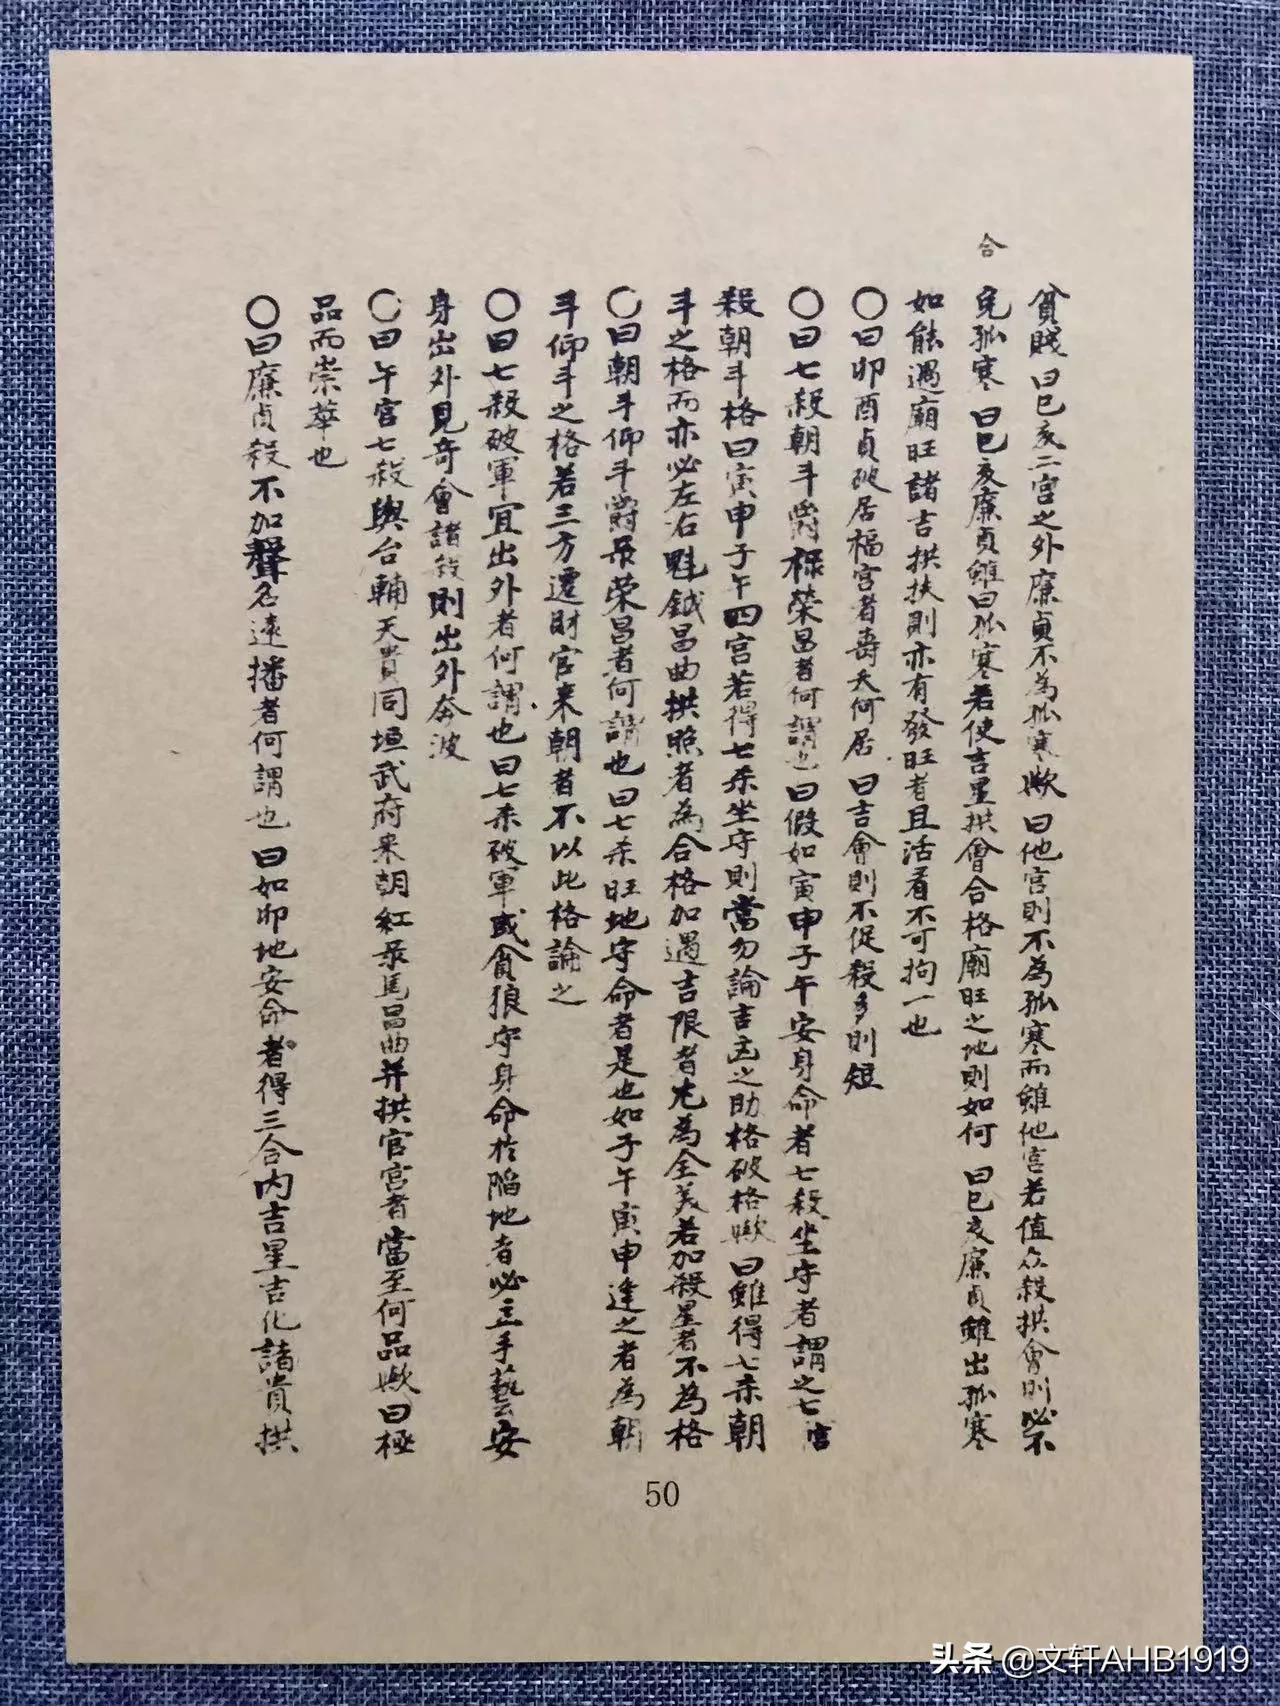 合
貧賤曰巳亥二宮之外廉貞不為孤寒歟曰他宮則不為孤寒而雖他宮若值众殺拱會則必不
免孤寒曰巳亥廉貞雖曰孤寒若使吉星拱會合格廟旺之地則如何曰巳亥廉貞雖出孤寒
如能遇廟旺諸吉拱扶則亦有發旺者且活看不可拘一也
〇曰卯酉貞破居福宮者壽夭何居曰吉會則不促殺多則短
〇曰七殺朝斗爵祿榮昌者何謂也曰假如寅申子午安身命者七殺坐守者謂之七
殺朝斗格曰寅申子午四宮若得七杀坐守則當勿論吉凶之助格破格歟曰雖得七杀朝
斗之格而亦必左右魁鉞昌曲拱照者為合格加遇吉限者尤為全美若加殺星者不為格
〇曰朝斗仰斗爵录荣昌者何謂也曰七杀旺地守命者是也如子午寅申逢之者為朝
斗仰斗之格若三方遷財官来朝者不以此格論之
〇曰七殺破軍宜出外者何謂也曰七杀破軍或貪狼守身命於陷地者必立手藝安
身出外見奇會諸殺則出外奔波
〇曰午宮七殺與台輔天貴同垣武府来朝紅录馬昌曲并拱官宮者當至何品歟曰極
品而崇華也
〇曰廉貞殺不加聲名遠播者何謂也曰如卯地安命者得三合內吉星吉化諸貴拱
50
头条 @文轩AHB1919